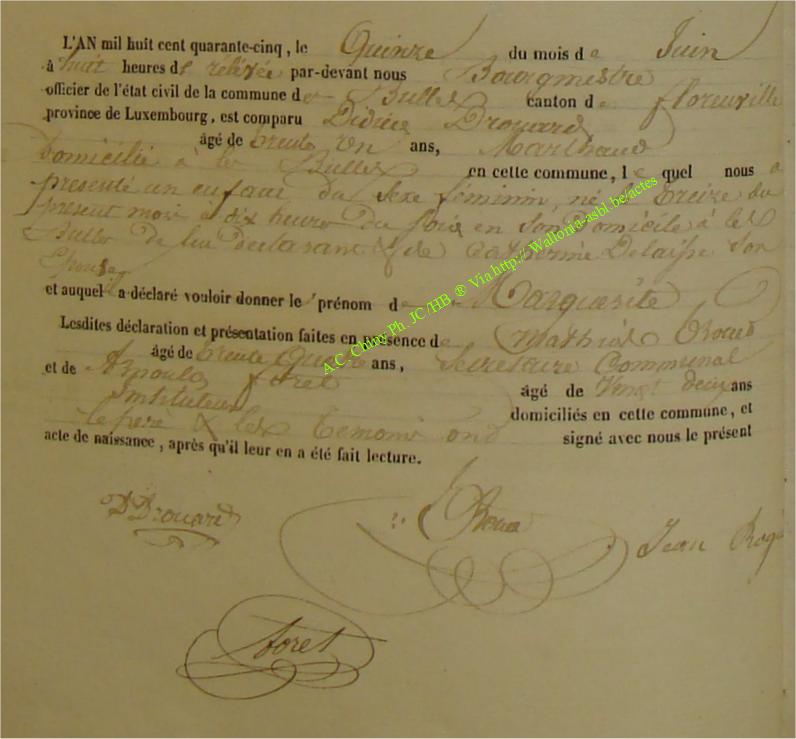 L'AN mil huit cent quarante-cinq, le Quinze du mois de Juin
à huit heures de relevée par-devant nous Bourgmestre
officier de l'état civil de la commune de Bulles canton de florenville
province de Luxembourg, est comparu Didier Drouard
âgé de trente un ans, Marchand
domicilié à les Bulles en cette commune, lequel nous a
présenté un enfant du sexe féminin, né le treize du
present mois à dix heures du soir en son domicile à les
Bulles de lui déclarant & de Catherine Delaisse son
Epouse
et auquel il a déclaré vouloir donner le prénom de Marguerite
Lesdites déclaration et présentation faites en présence de Mathias
âgé de trente Quatre ans, Secretaire Communal
et de Arnould foret âgé de Vingt deux ans
Instituteur domiciliés en cette commune, et
le père & les temoins ont signé avec nous le présent
acte de naissance, après qu'il leur en a été fait lecture.
D Drouard
Jean
foret
A.C. Chiny Ph. JC /HB ® Via http:// Wallonia-asbl.be/actes